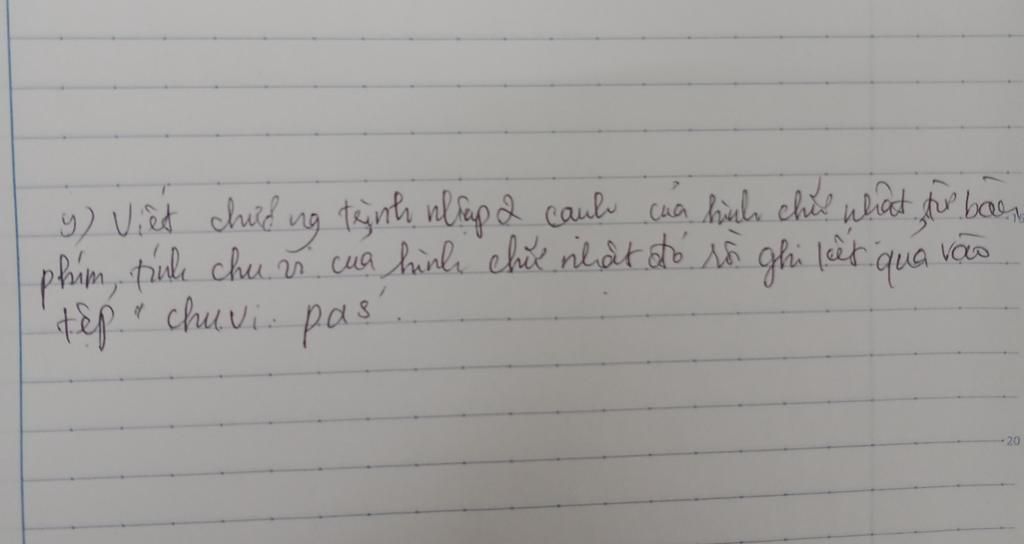 y) Viết chương trình nhập 2 cạnh của hình chữ nhật từ bàn
phím, tính chu vi của hình chữ nhật đó rồi ghi kết quả vào
tệp "chuvi.pas".
20